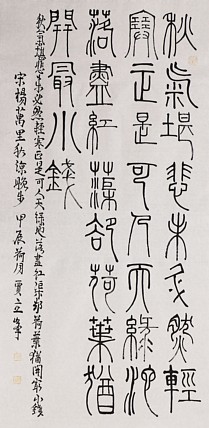 秋氣堪悲未必然輕
寒正是可人天綠池
落盡紅蕖卻荷葉猶
開最小錢
秋氣堪悲未必然輕寒正是可人天綠池落盡紅蕖却荷葉猶開最小錢
宋楊萬里秋涼晚步 甲辰荷月 賈立